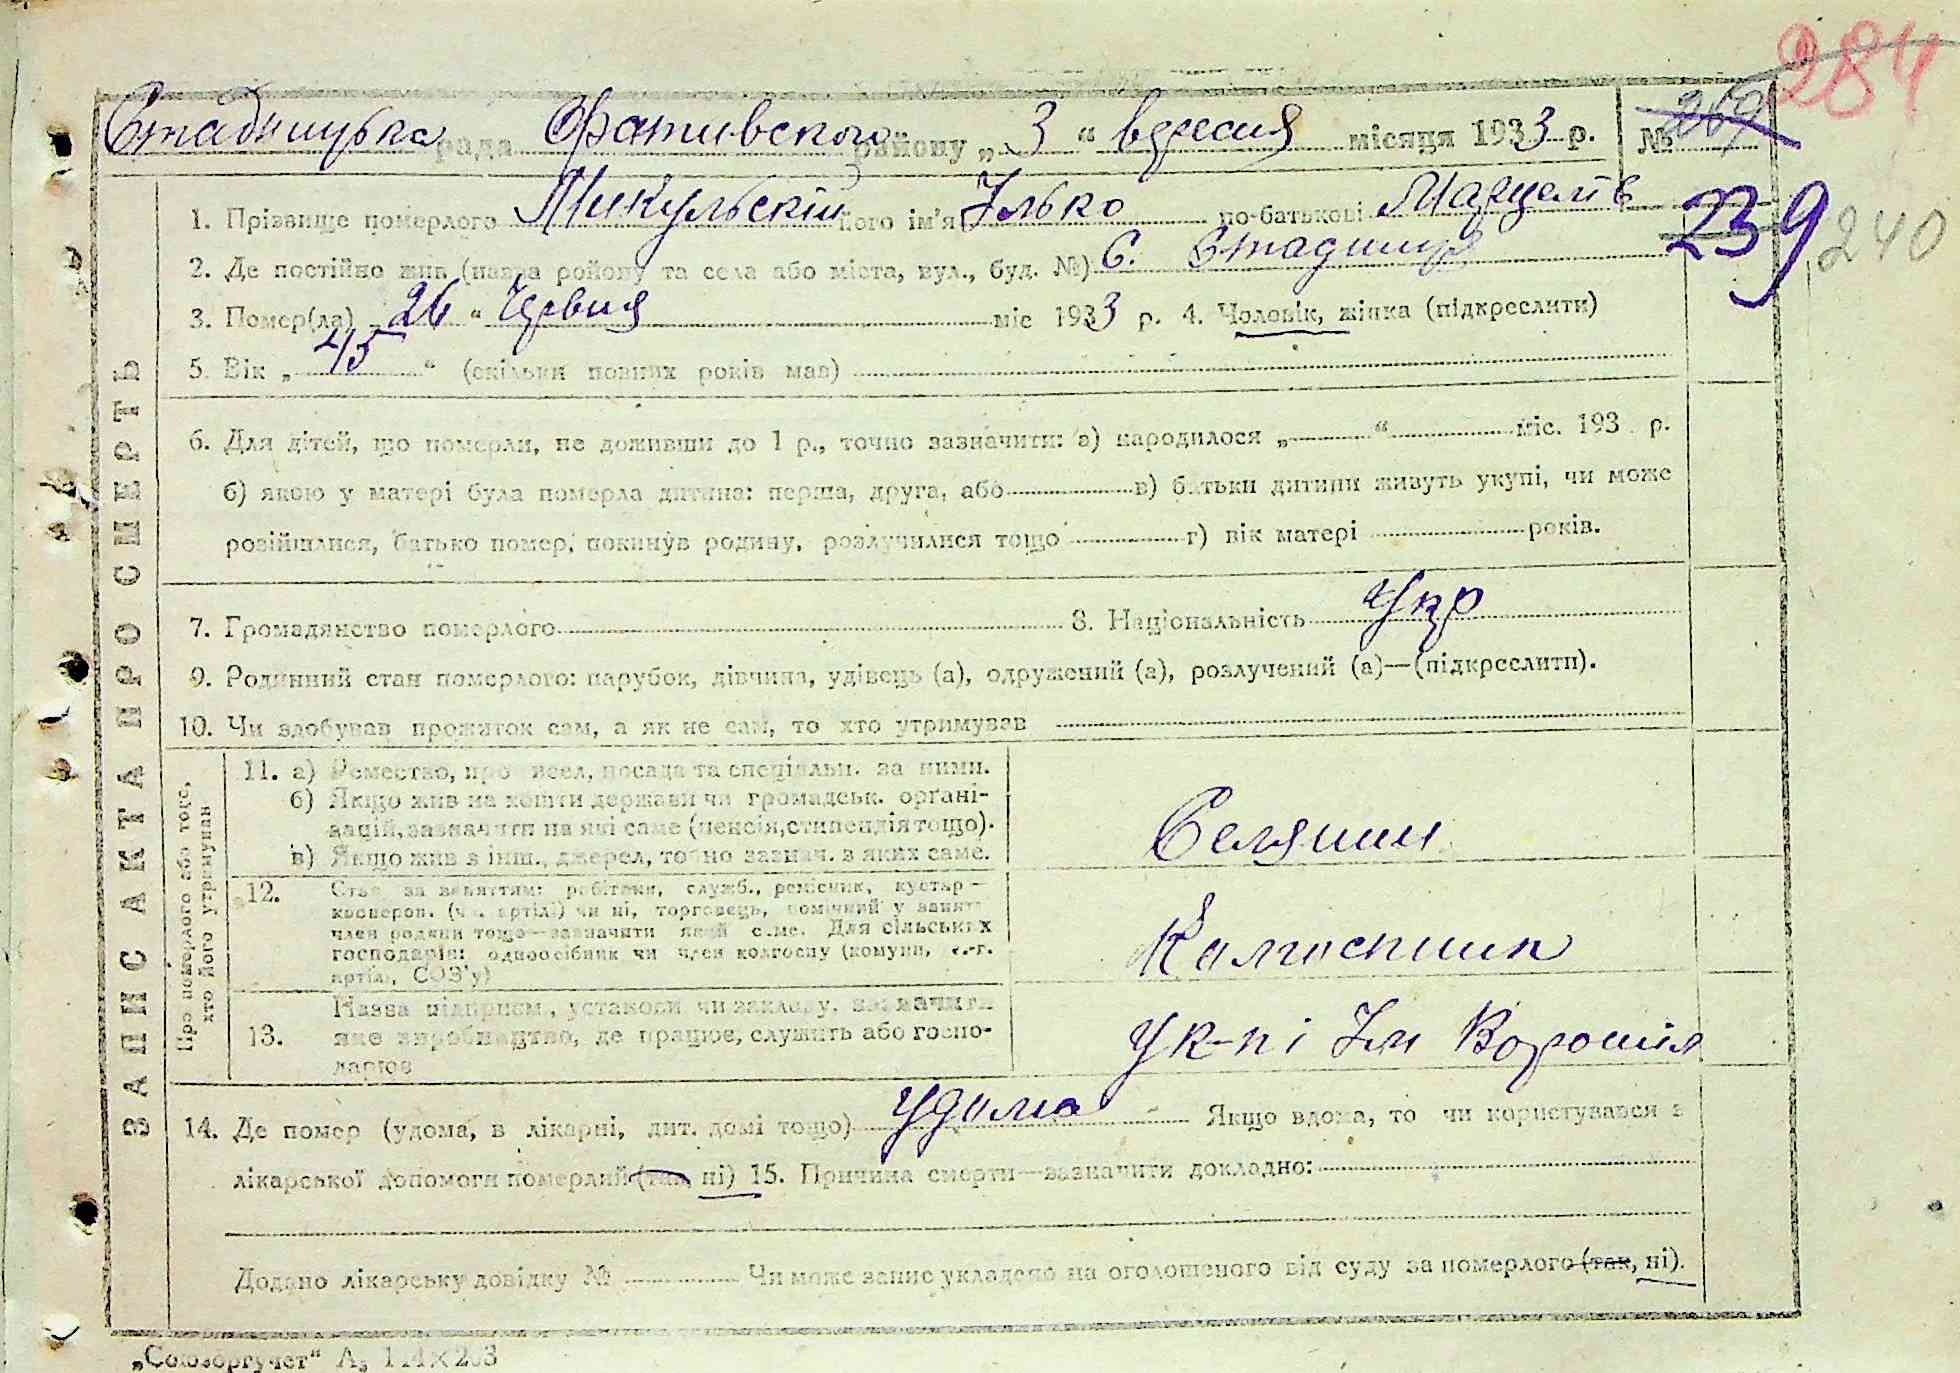 284
Стадницька рада Фастивского району „ 3 “ вересня місяця 1933 р. № 269
239 240
1. Прізвище померлого Микульский його ім'я Ілько по-батькові Марцелів
2. Де постійно жив (назва району та села або міста, вул., буд. №) С. Стадниця
3. Помер(ла) 24 “ Червня міс 1933 р. 4. Чоловік, жінка (підкреслити)
5. Вік „ 45 “ (скільки повних років мав)
6. Для дітей, що померли, не доживши до 1 р., точно зазначити: а) народилося „ “ міс. 193 р.
б) якою у матері була померла дитина: перша, друга, або в) батьки дитини живуть укупі, чи може
розійшлися, батько помер, покинув родину, розлучилися тощо г) вік матері років.
7. Громадянство померлого 8. Національність Укр
9. Родинний стан померлого: парубок, дівчина, удівець (а), одружений (а), розлучений (а)—(підкреслити).
10. Чи здобував прожиток сам, а як не сам, то хто утримував
ЗАПИС АКТА ПРО СМЕРТЬ
Про померлого або того,
хто його утримував
11. а) Ремество, промисел, посада та спеціальн. за ними.
б) Якщо жив на кошти держави чи громадськ. органі-
зацій, зазначити на які саме (пенсія, стипендія тощо).
в) Якщо жив з інш., джерел, точно зазнач. з яких саме.
Селянин
12. Стан за заняттям: робітник, служб., ремісник, кустар—
кооперов. (чл. артілі) чи ні, торговець, помічний у занят.
член родини тощо—зазначити який саме. Для сільських
господарів: одноосібник чи член колгоспу (комуни, с.-г.
артілі, СОЗ'у)
Колгоспник
13. Назва підприєм., установи чи закладу, зазначити
яке виробництво, де працює, служить або госпо-
дарює
Ук-пі Ім Ворошил
14. Де помер (удома, в лікарні, дит. домі тощо) удома Якщо вдома, то чи користувався з
лікарської допомоги померлий (так, ні) 15. Причина смерти—зазначити докладно:
Додано лікарську довідку № Чи може запис укладено на оголошеного від суду за померлого (так, ні).
„Союзоргучет“